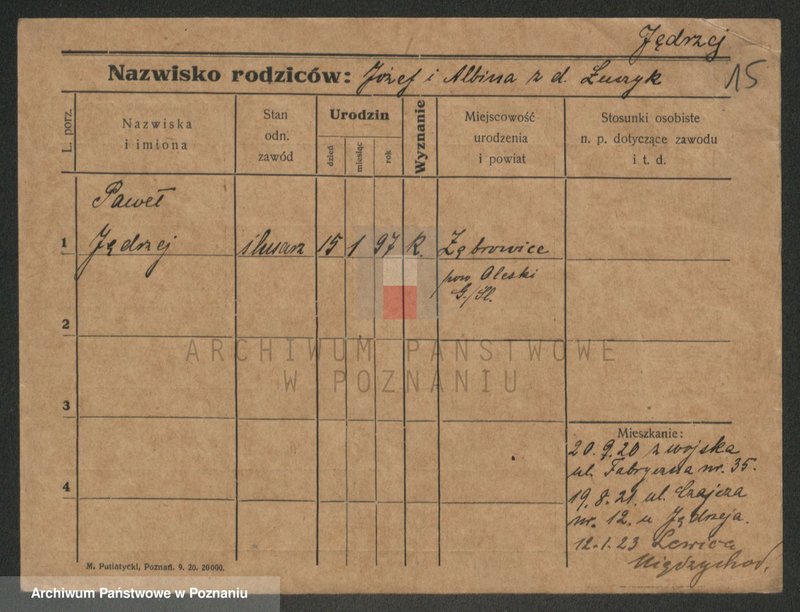 Jędrzej
Nazwisko rodziców: Józef i Albina z d. Łuczyk
15
L. porz.
Nazwiska
i imiona
Stan
odn.
zawód
Urodzin
dzień
miesiąc
rok
Wyznanie
Miejscowość
urodzenia
i powiat
Stosunki osobiste
n. p. dotyczące zawodu
i t. d.
Paweł
1 Jędrzej ślusarz 15 1 97 k. Ząbrowice
pow. Oleski
G./Śl.
2
ARCHIWUM PAŃSTWOWE
W POZNANIU
3
Mieszkanie:
20.9.20 z wojska
ul. Fabryczna nr. 35.
19.8.21. ul. Czajcza
nr. 12. u Jędrzeja.
4
12.1.23 Lewice
Międzychod.
M. Putiatycki, Poznań. 9. 20. 20000.
Archiwum Państwowe w Poznaniu